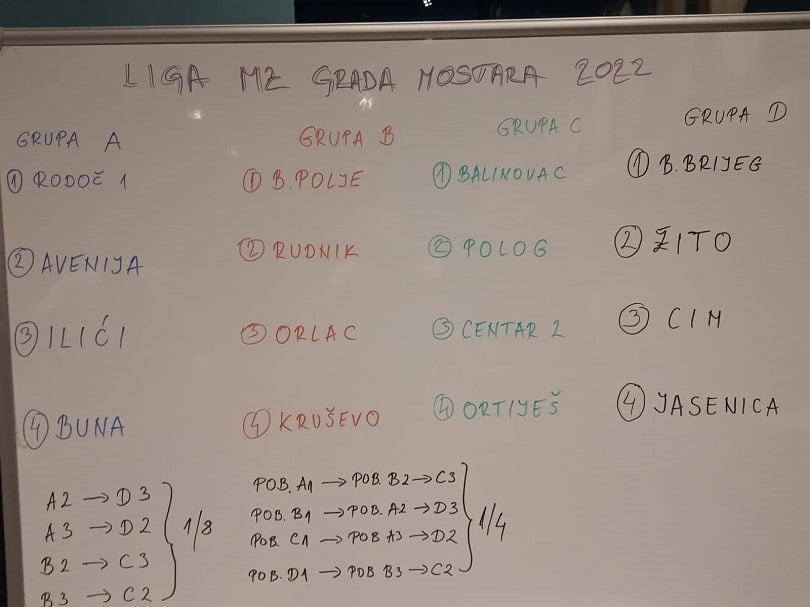 LIGA MZ GRADA MOSTARA 2022
GRUPA A
1 RODOČ 1
2 AVENIJA
3 ILIĆI
4 BUNA
GRUPA B
1 B. POLJE
2 RUDNIK
3 ORLAC
4 KRUŠEVO
GRUPA C
1 BALINOVAC
2 POLOG
3 CENTAR 2
4 ORTIJEŠ
GRUPA D
1 B. BRIJEG
2 ŽITO
3 CIM
4 JASENICA
A2 → D3
A3 → D2
B2 → C3
B3 → C2
1/8
POB. A1 → POB. B2 → C3
POB. B1 → POB. A2 → D3
POB. C1 → POB A3 → D2
POB. D1 → POB B3 → C2
1/4